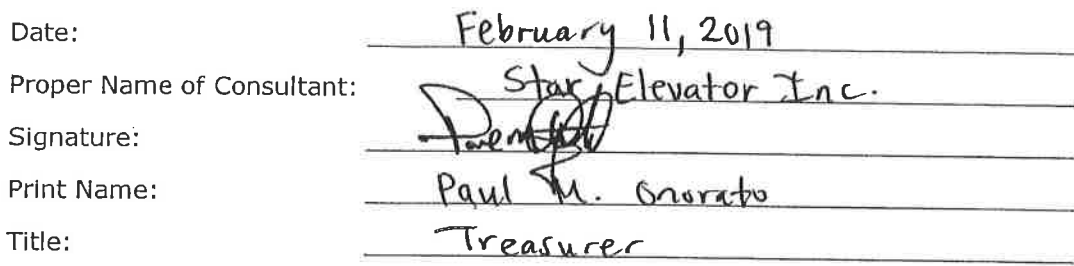 Date: February 11, 2019
Proper Name of Consultant: Star Elevator Inc.
Signature:
Print Name: Paul M. Onorato
Title: Treasurer